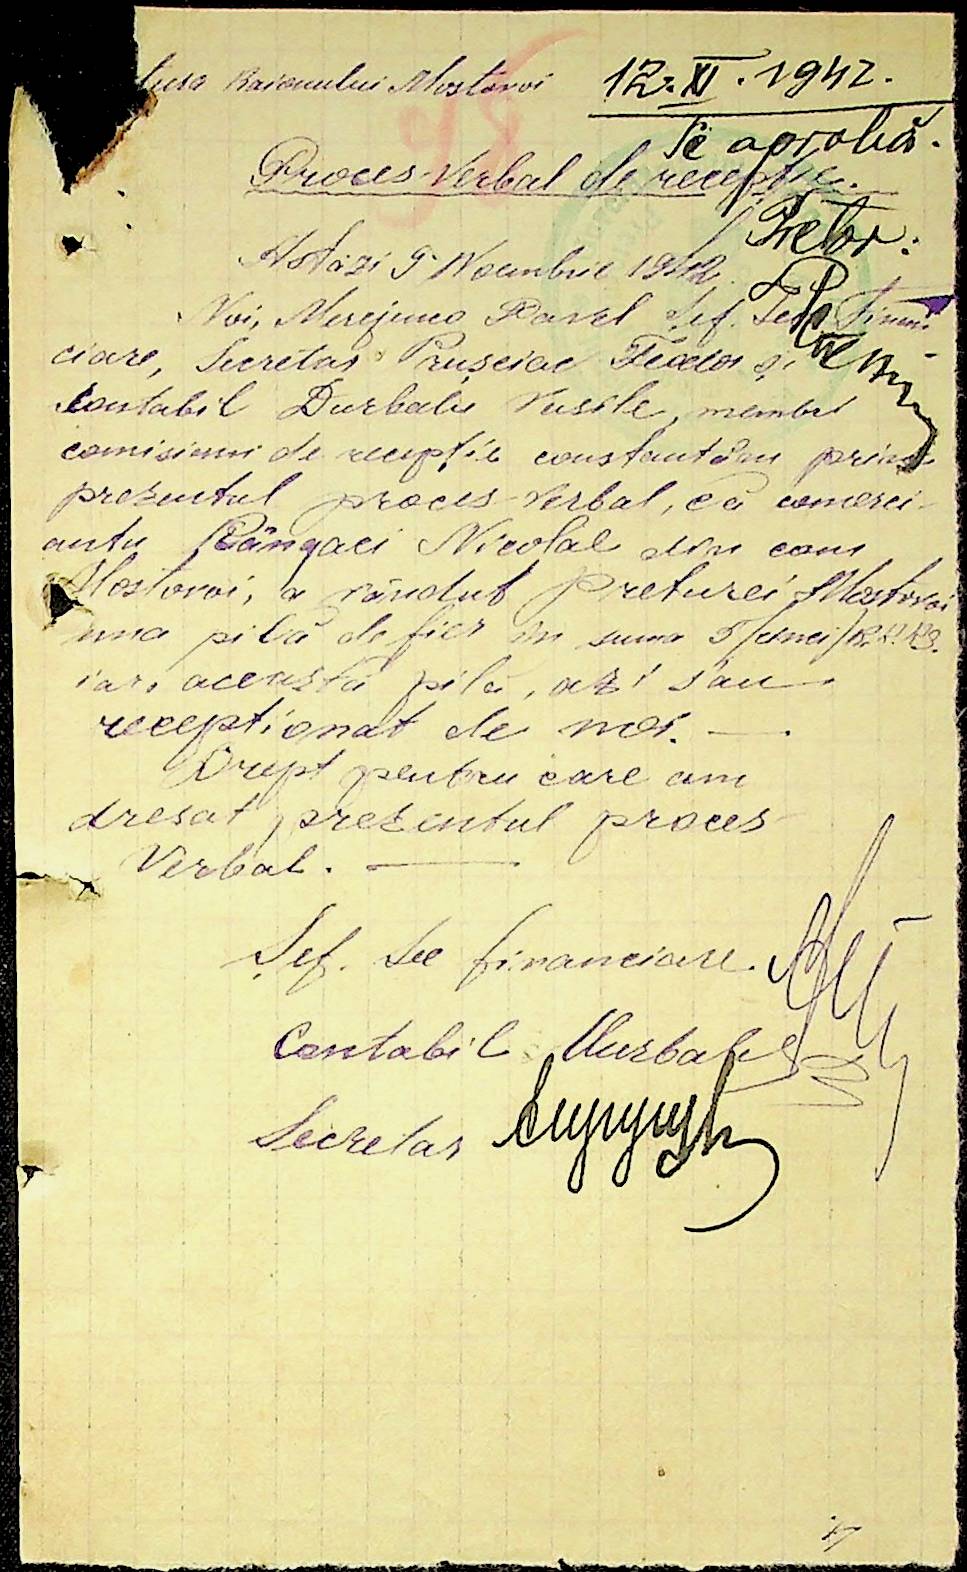 tura Raionului Mostovoi
12.XI.1942.
Se aprobă.
Proces-Verbal de recepție.
Pretor:
Astăzi 9 Noembrie 1942.
Noi, Merejuco Pavel Șef. Sec. Finan-
ciare, Secretar Prușciac Feodor și
Contabil Durbalu Vasile, membri
comisiuni de recepție constantăm prin
prezentul proces-verbal, că comerci-
antu Rângaci Nicolae din com
Mostovoi, a vândut Preturei Mostovoi
una pilă de fier în suma 5/cinci/R.K.K.S.
iar, aceasta pilă, azi s'au
recepționat de noi. —
Drept pentru care am
dresat prezentul proces-
Verbal. —
Șef. Sec financiare.
Contabil Durbalu
Secretar